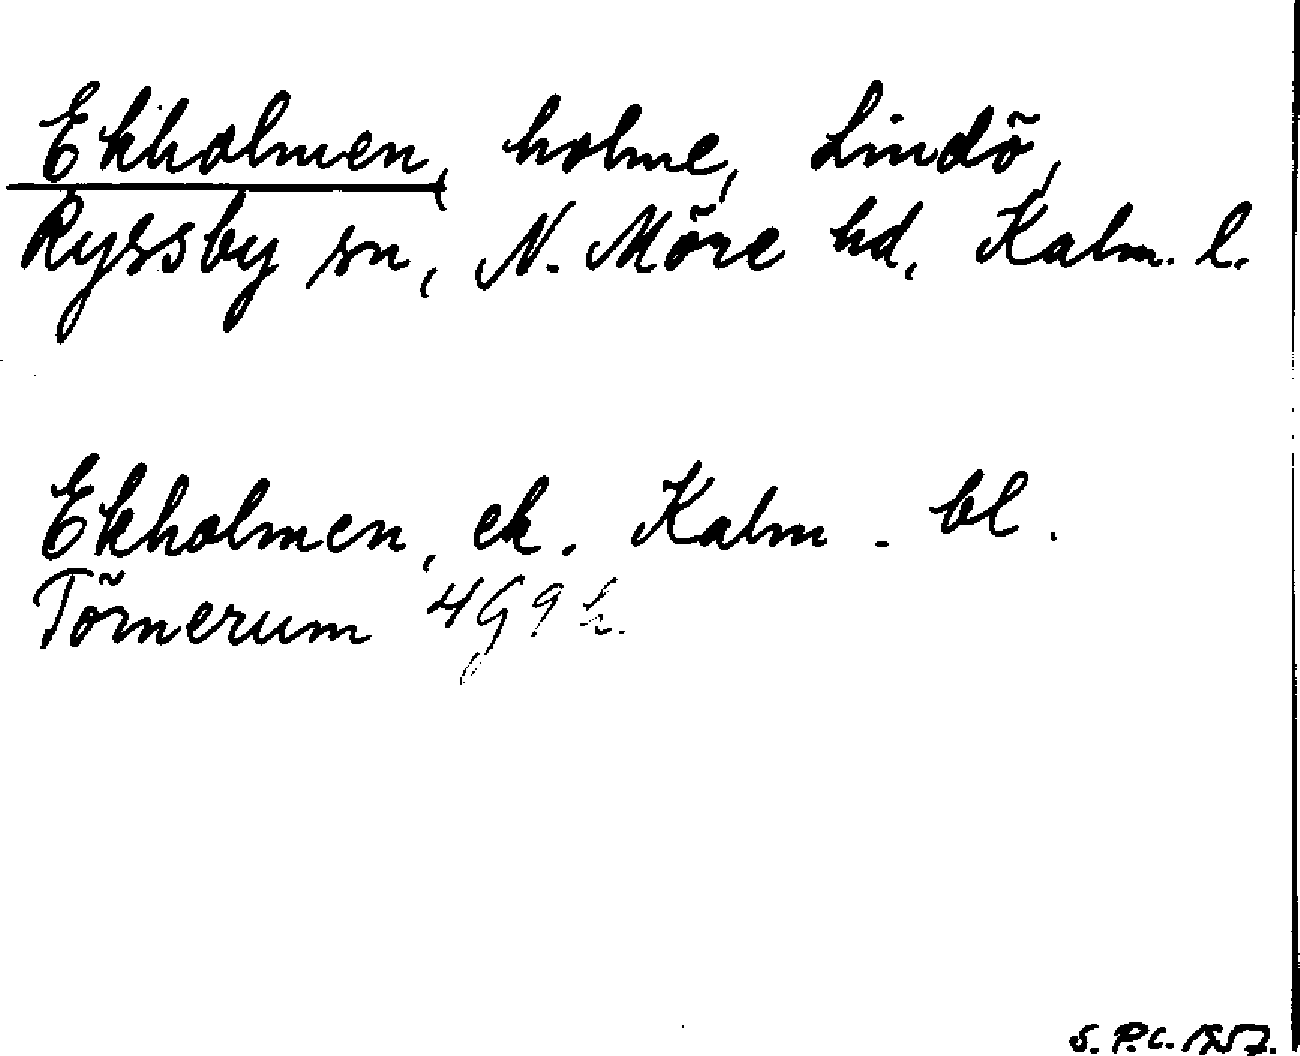 Ekholmen, holme, Lindö,
Ryssby sn, N. Möre hd, Kalm. l.
Ekholmen, ek. Kalm. bl.
Törnerum 4G9h.
S.P.C. 1957.